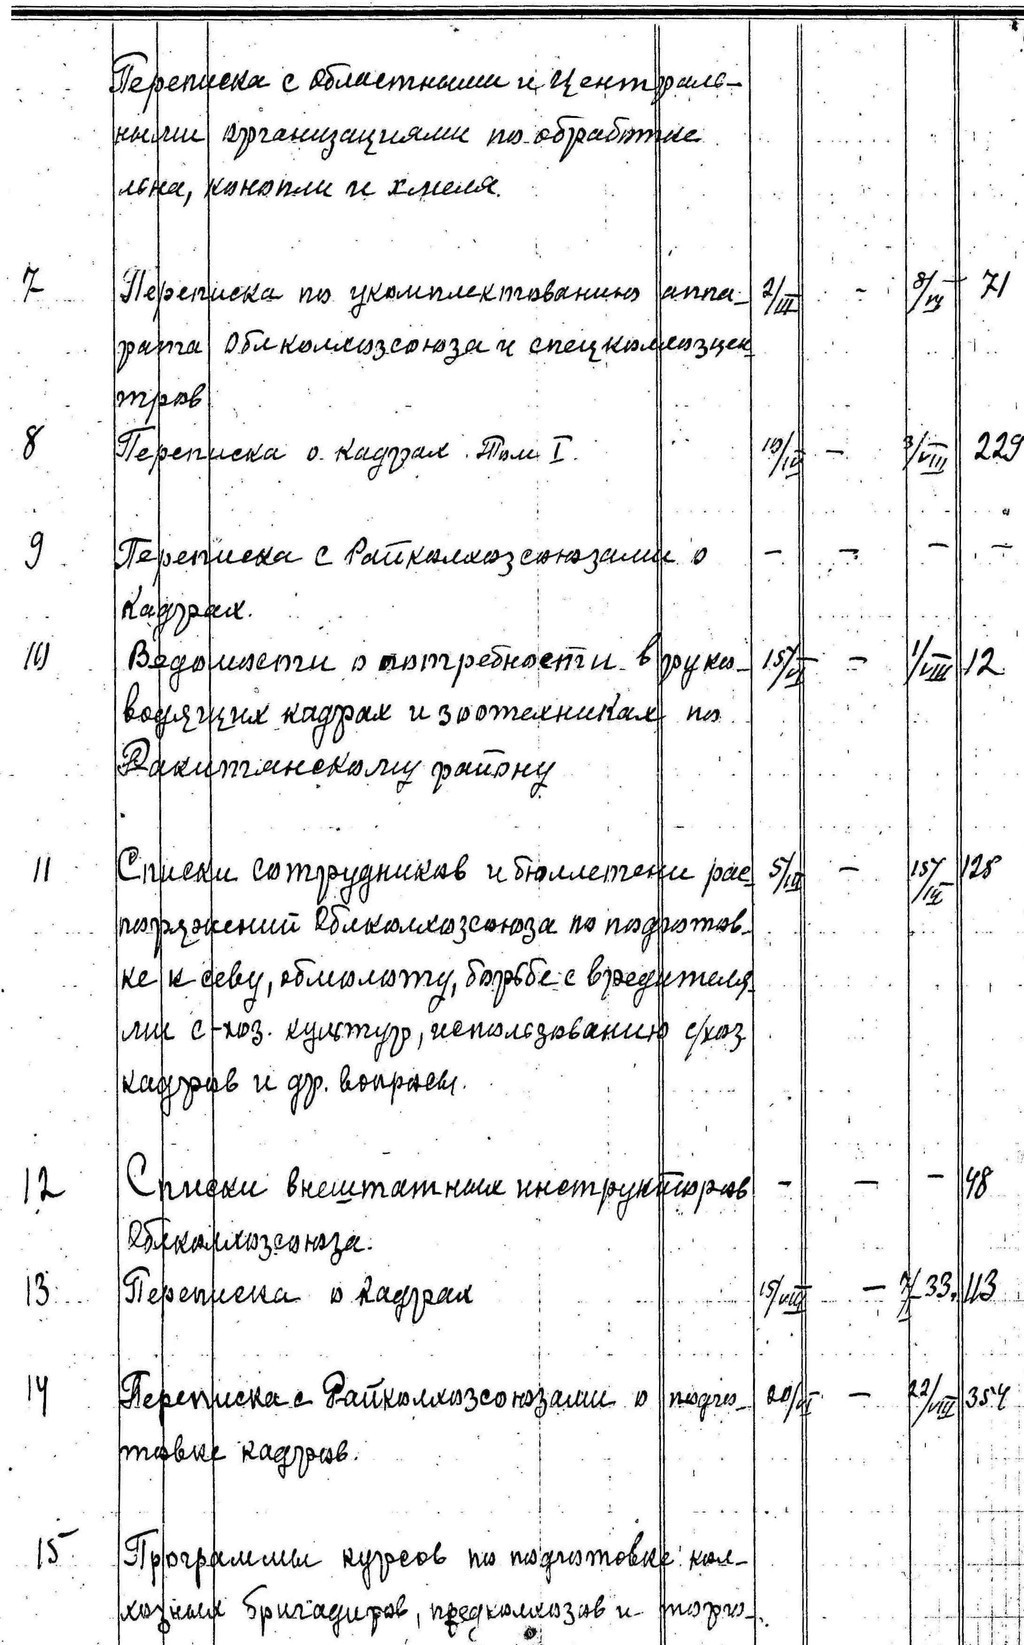 Переписка с областными и централь-
ными организациями по обработке
льна, конопли и хмеля.
7 Переписка по укомплектованию аппа- 2/III - 8/IX 71
рата Облколхозсоюза и спецколхозцен
тров
8 Переписка о кадрах. Том I. 10/IV - 3/VIII 229
9 Переписка с Райколхозсоюзами о - - - -
кадрах.
10 Ведомости о потребности в руко- 15/VI - 1/VIII 12
водящих кадрах и зоотехниках по
Ракитянскому району
11 Списки сотрудников и бюллетени рас 5/III - 15/IX 128
поряжений Облколхозсоюза по подготов-
ке к севу, обмолоту, борьбе с вредителя
ми с-хоз. культур, использованию с/хоз
кадров и др. вопросы.
12 Списки внештатных инструкторов - - - 48
Облколхозсоюза.
13 Переписка о кадрах 15/VIII - 33. 113
14 Переписка с Райколхозсоюзами о подго- 20/VI - 22/VIII 354
товке кадров.
15 Программы курсов по подготовке кол-
хозных бригадиров, предколхозов и торго-